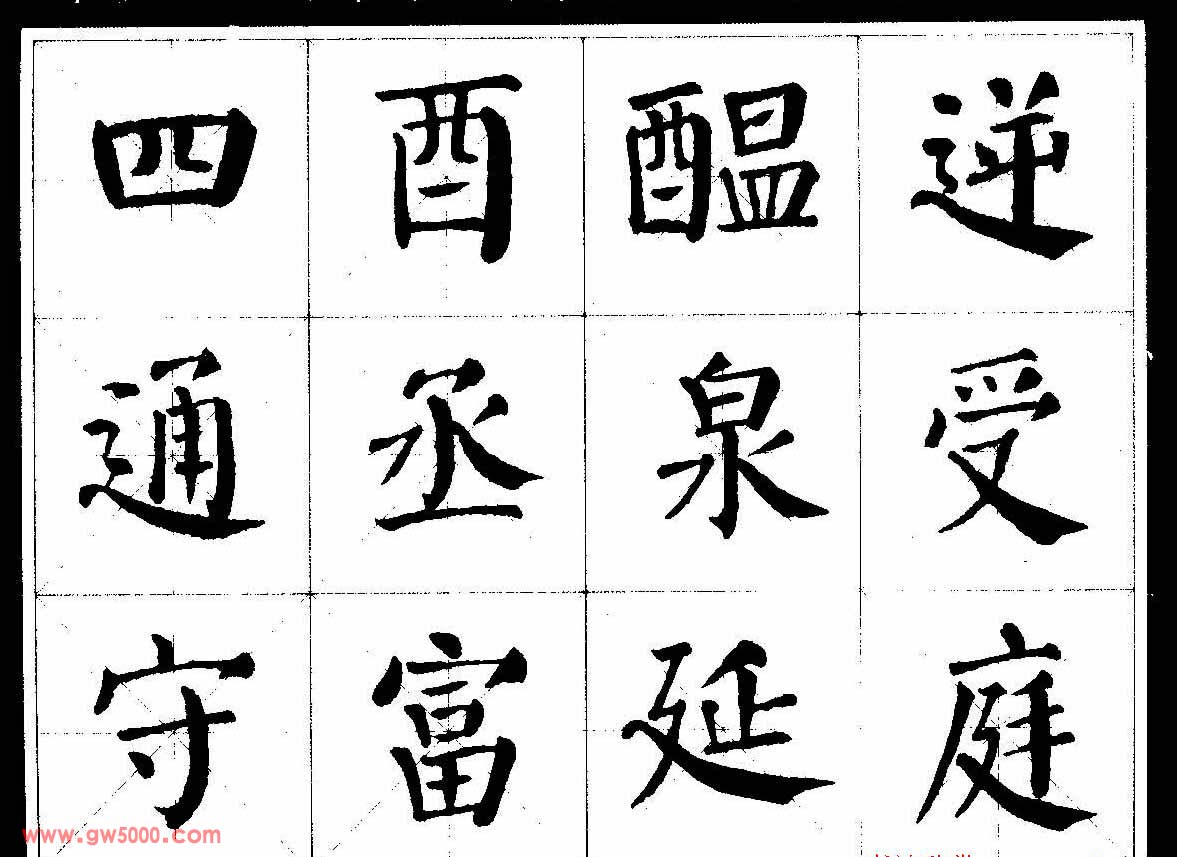 四酉醖逆
通丞泉受
守富延庭
www.gw5000.com